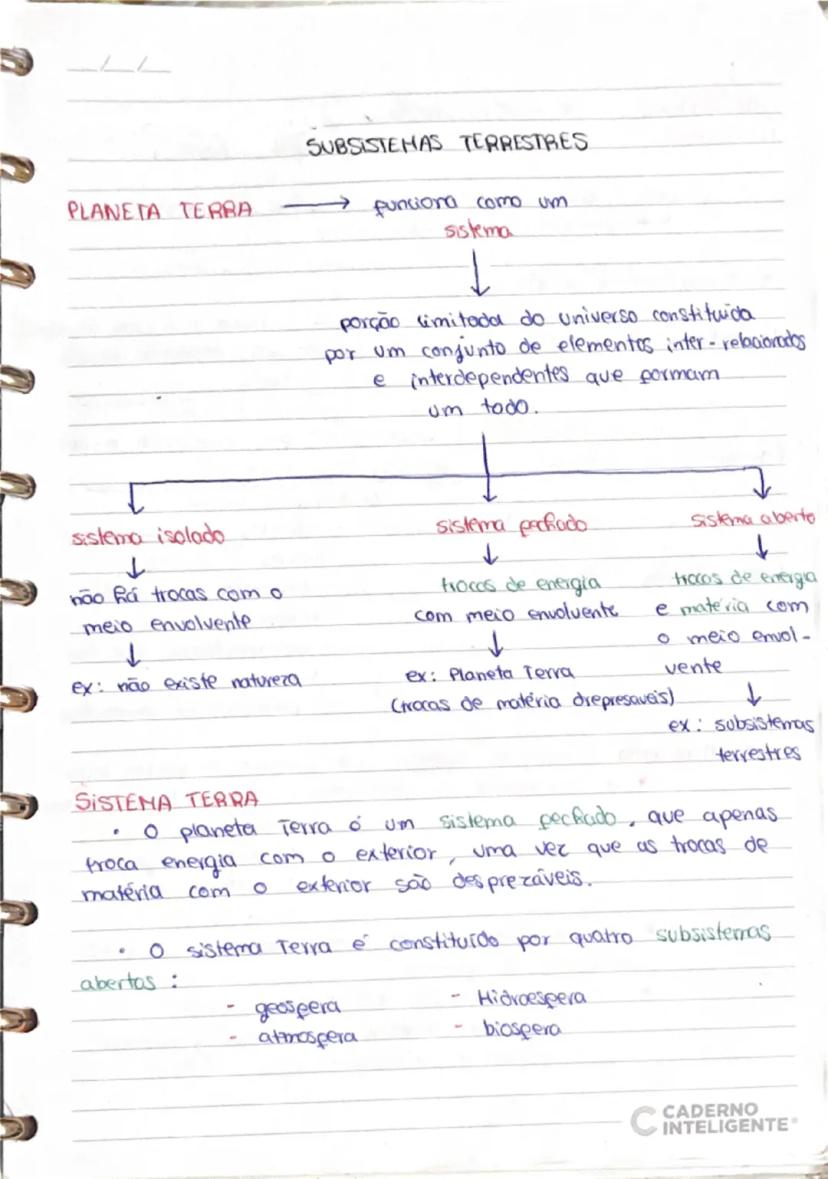 __/__/__
SUBSISTEMAS TERRESTRES
PLANETA TERRA → funciona como um
sistema
porção limitada do universo constituída
por um conjunto de elementos inter-relacionados
e interdependentes que formam
um todo.
sistema isolado
sistema fechado
sistema aberto
não há trocas com o
meio envolvente
ex: não existe natureza
trocas de energia
com meio envolvente
ex: Planeta Terra
(trocas de matéria drepresaveis)
trocas de energia
e matéria com
o meio envol-
vente
ex: subsistemas
terrestres
SISTEMA TERRA
• O planeta Terra é um sistema fechado, que apenas
troca energia com o exterior, uma vez que as trocas de
matéria com o exterior são desprezáveis.
• O sistema Terra é constituído por quatro subsistemas
abertos:
- geosfera - Hidroesfera
- atmosfera - biosfera
CADERNO
INTELIGENTE®